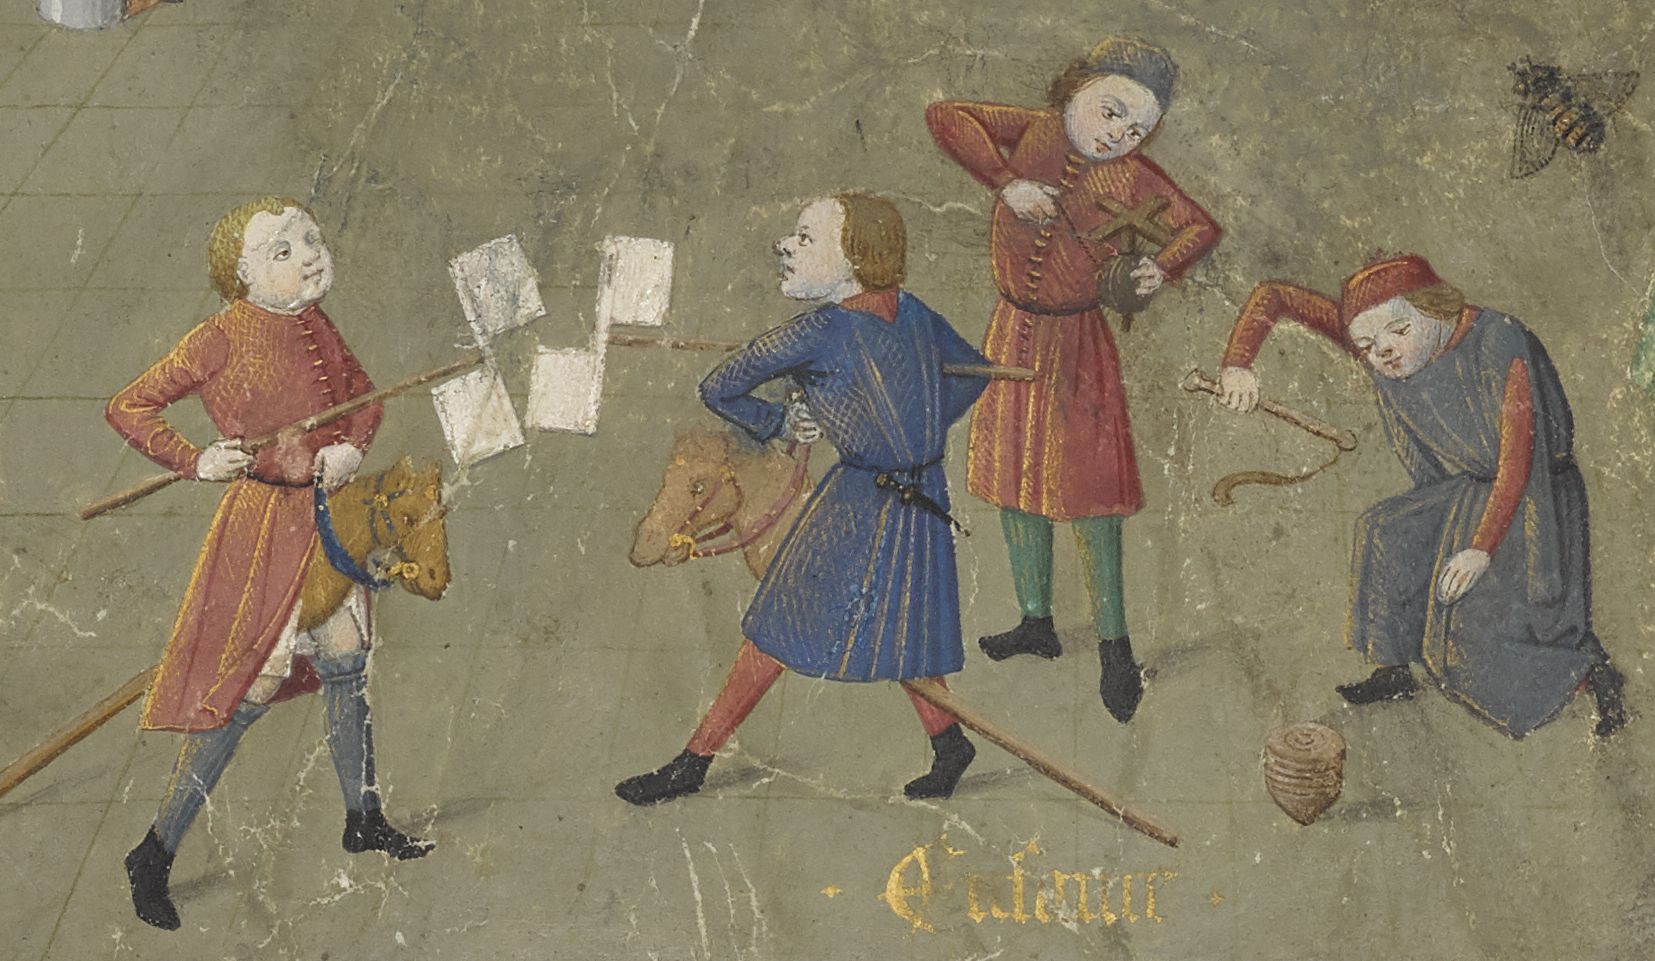 · Enfance ·